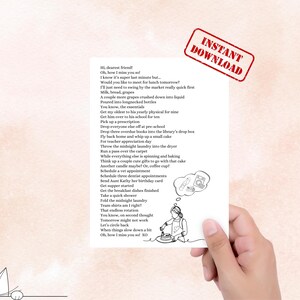 INSTANT
DOWNLOAD
Hi, dearest friend!
Oh, how I miss you so!
I know it's super last minute but...
Would you like to meet for lunch tomorrow?
I'll just need to swing by the market really quick first
Milk, bread, grapes
A couple more grapes crushed down into liquid
Poured into longnecked bottles
You know, the essentials
Get my oldest to his yearly physical for nine
Get him over to his school for ten
Pick up a prescription
Drop everyone else off at pre-school
Drop three overdue books into the library's drop box
Fly back home and whip up a small cake
For teacher appreciation day
Throw the midnight laundry into the dryer
Run a pass over the carpet
While everything else is spinning and baking
Think up a couple cute gifts to go with that cake
Another candle maybe? Or, coffee cup?
Schedule a vet appointment
Schedule three dentist appointments
Send Aunt Kathy her birthday card!
Get supper started
Get the breakfast dishes finished
Take a quick shower
Fold the midnight laundry
Team shirts am I right?
That endless rotation
You know, on second thought
Tomorrow might not work
Let's circle back
When things slow down a bit
Oh, how I miss you so! XO